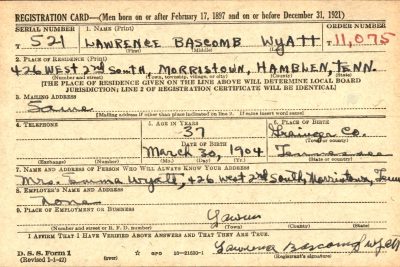 REGISTRATION CARD—(Men born on or after February 17, 1897 and on or before December 31, 1921)
SERIAL NUMBER 1. NAME (Print) ORDER NUMBER
T 521 LAWRENCE BASCOMB WYATT T 11,075
(First) (Middle) (Last)
2. PLACE OF RESIDENCE (Print)
426 WEST 2nd SOUTH, MORRISTOWN, HAMBLEN, TENN.
(Number and street) (Town, township, village, or city) (County) (State)
[THE PLACE OF RESIDENCE GIVEN ON THE LINE ABOVE WILL DETERMINE LOCAL BOARD
JURISDICTION; LINE 2 OF REGISTRATION CERTIFICATE WILL BE IDENTICAL]
3. MAILING ADDRESS
Same
[Mailing address if other than place indicated on line 2. If same insert word same]
4. TELEPHONE 5. AGE IN YEARS 6. PLACE OF BIRTH
37 Grainger Co.
DATE OF BIRTH (Town or county)
March 30, 1904 Tennessee
(Exchange) (Number) (Mo.) (Day) (Yr.) (State or country)
7. NAME AND ADDRESS OF PERSON WHO WILL ALWAYS KNOW YOUR ADDRESS
Mrs. Emma Wyatt, 426 West 2nd South, Morristown, Tenn
8. EMPLOYER'S NAME AND ADDRESS
None
9. PLACE OF EMPLOYMENT OR BUSINESS
(Number and street or R. F. D. number) (Town) (County) (State)
I AFFIRM THAT I HAVE VERIFIED ABOVE ANSWERS AND THAT THEY ARE TRUE.
D. S. S. Form 1
(Revised 1-1-42) GPO 16-21630-1 Lawrence Bascomb Wyatt
(Registrant's signature)